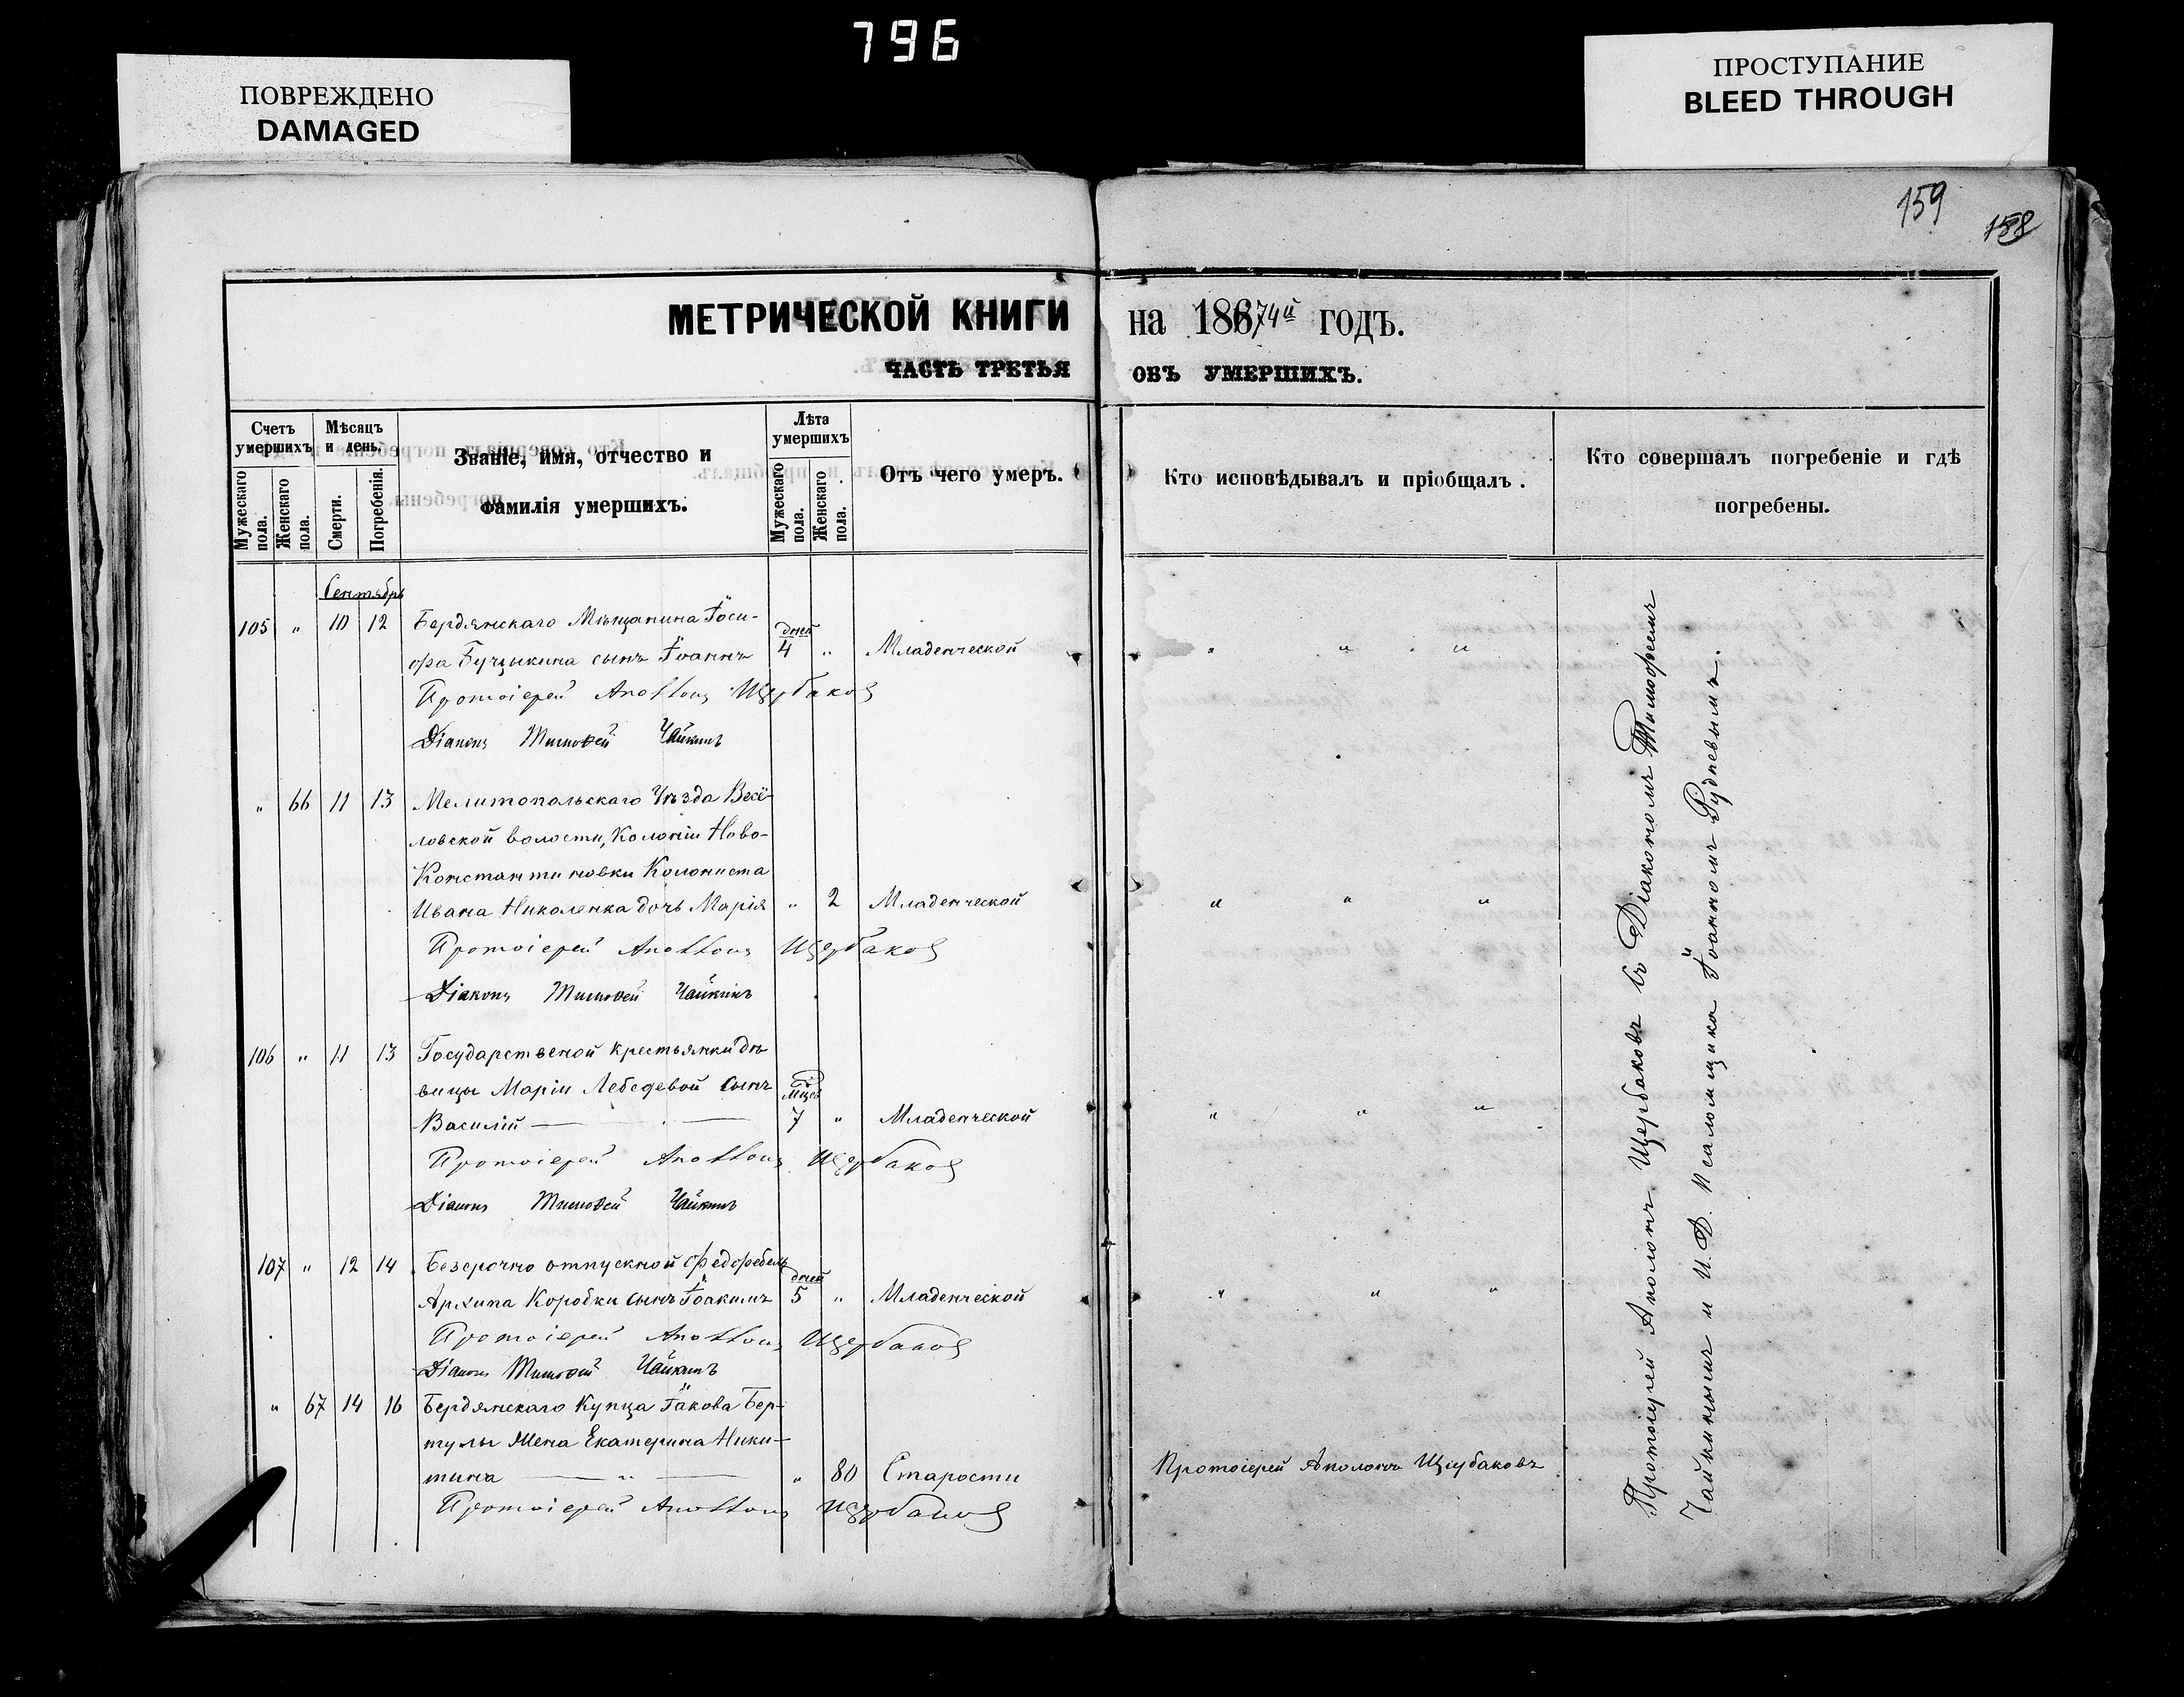 796
ПОВРЕЖДЕНО
DAMAGED
ПРОСТУПАНИЕ
BLEED THROUGH
159
158
МЕТРИЧЕСКОЙ КНИГИ на 18674й годъ.
ЧАСТЬ ТРЕТЬЯ ОБЪ УМЕРШИХЪ.
Счетъ умершихъ
Мужескаго пола.
Женскаго пола.
Мѣсяцъ и день.
Смерти.
Погребенія.
Званіе, имя, отчество и
фамилія умершихъ.
Лѣта умершихъ
Мужескаго пола.
Женскаго пола.
Отъ чего умеръ.
Кто исповѣдывалъ и пріобщалъ.
Кто совершалъ погребеніе и гдѣ
погребены.
Сентябрь
105 " 10 12 Бердянскаго Мѣщанина Іоси-
фа сынъ Іоаннъ дней 4 " Младенческой " " "
Протоіерей Аполлонъ Щербаковъ
Діаконъ Тимофей Чайкинъ
" 66 11 13 Мелитопольскаго Уѣзда Весё-
ловской волости, Колоніи Ново-
Константиновки Колониста
Ивана Николенка дочь Марія " 2 Младенческой " " "
Протоіерей Аполлонъ Щербаковъ
Діаконъ Тимофей Чайкинъ
106 " 11 13 Государственой крестьянки дѣ
вицы Маріи Лебедевой сынъ
Василій — мцев 7 " Младенческой " " "
Протоіерей Аполлонъ Щербаковъ
Діаконъ Тимофей Чайкинъ
107 " 12 14 Безсрочно отпускной Федфебель
Архипа Коробки сынъ Іоакимъ дней 5 " Младенческой " " "
Протоіерей Аполлонъ Щербаковъ
Діаконъ Тимофей Чайкинъ
" 67 14 16 Бердянскаго Купца Іакова Бер-
тулы Жена Екатерина Ники-
тина — " — " 80 Старости Протоіерей Аполонъ Щербаковъ
Протоіерей Аполлонъ Щербаковъ
Протоіерей Аполонъ Щербаковъ съ Діакономъ Тимофеемъ
Чайкинымъ и И. Д. Псаломщика Іоанномъ Рудневымъ.